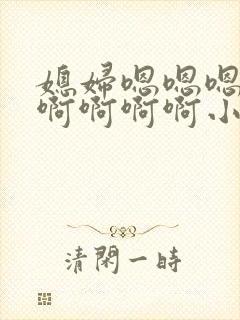 媳妇嗯嗯嗯
啊啊啊啊小
清閑一時